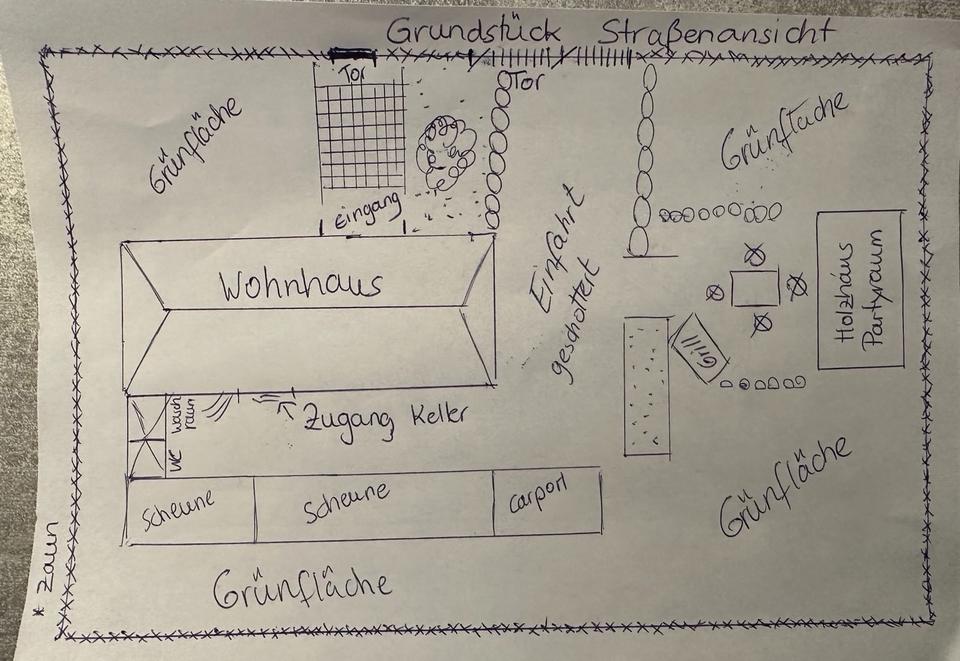 Grundstück Straßenansicht
Tor
Tor
Grünfläche
Grünfläche
Eingang
Wohnhaus
Einfahrt
geschottert
Holzhaus
Partyraum
Grill
Wasch
raum
WC
Zugang Keller
Scheune
Scheune
Carport
Grünfläche
Grünfläche
* Zaun